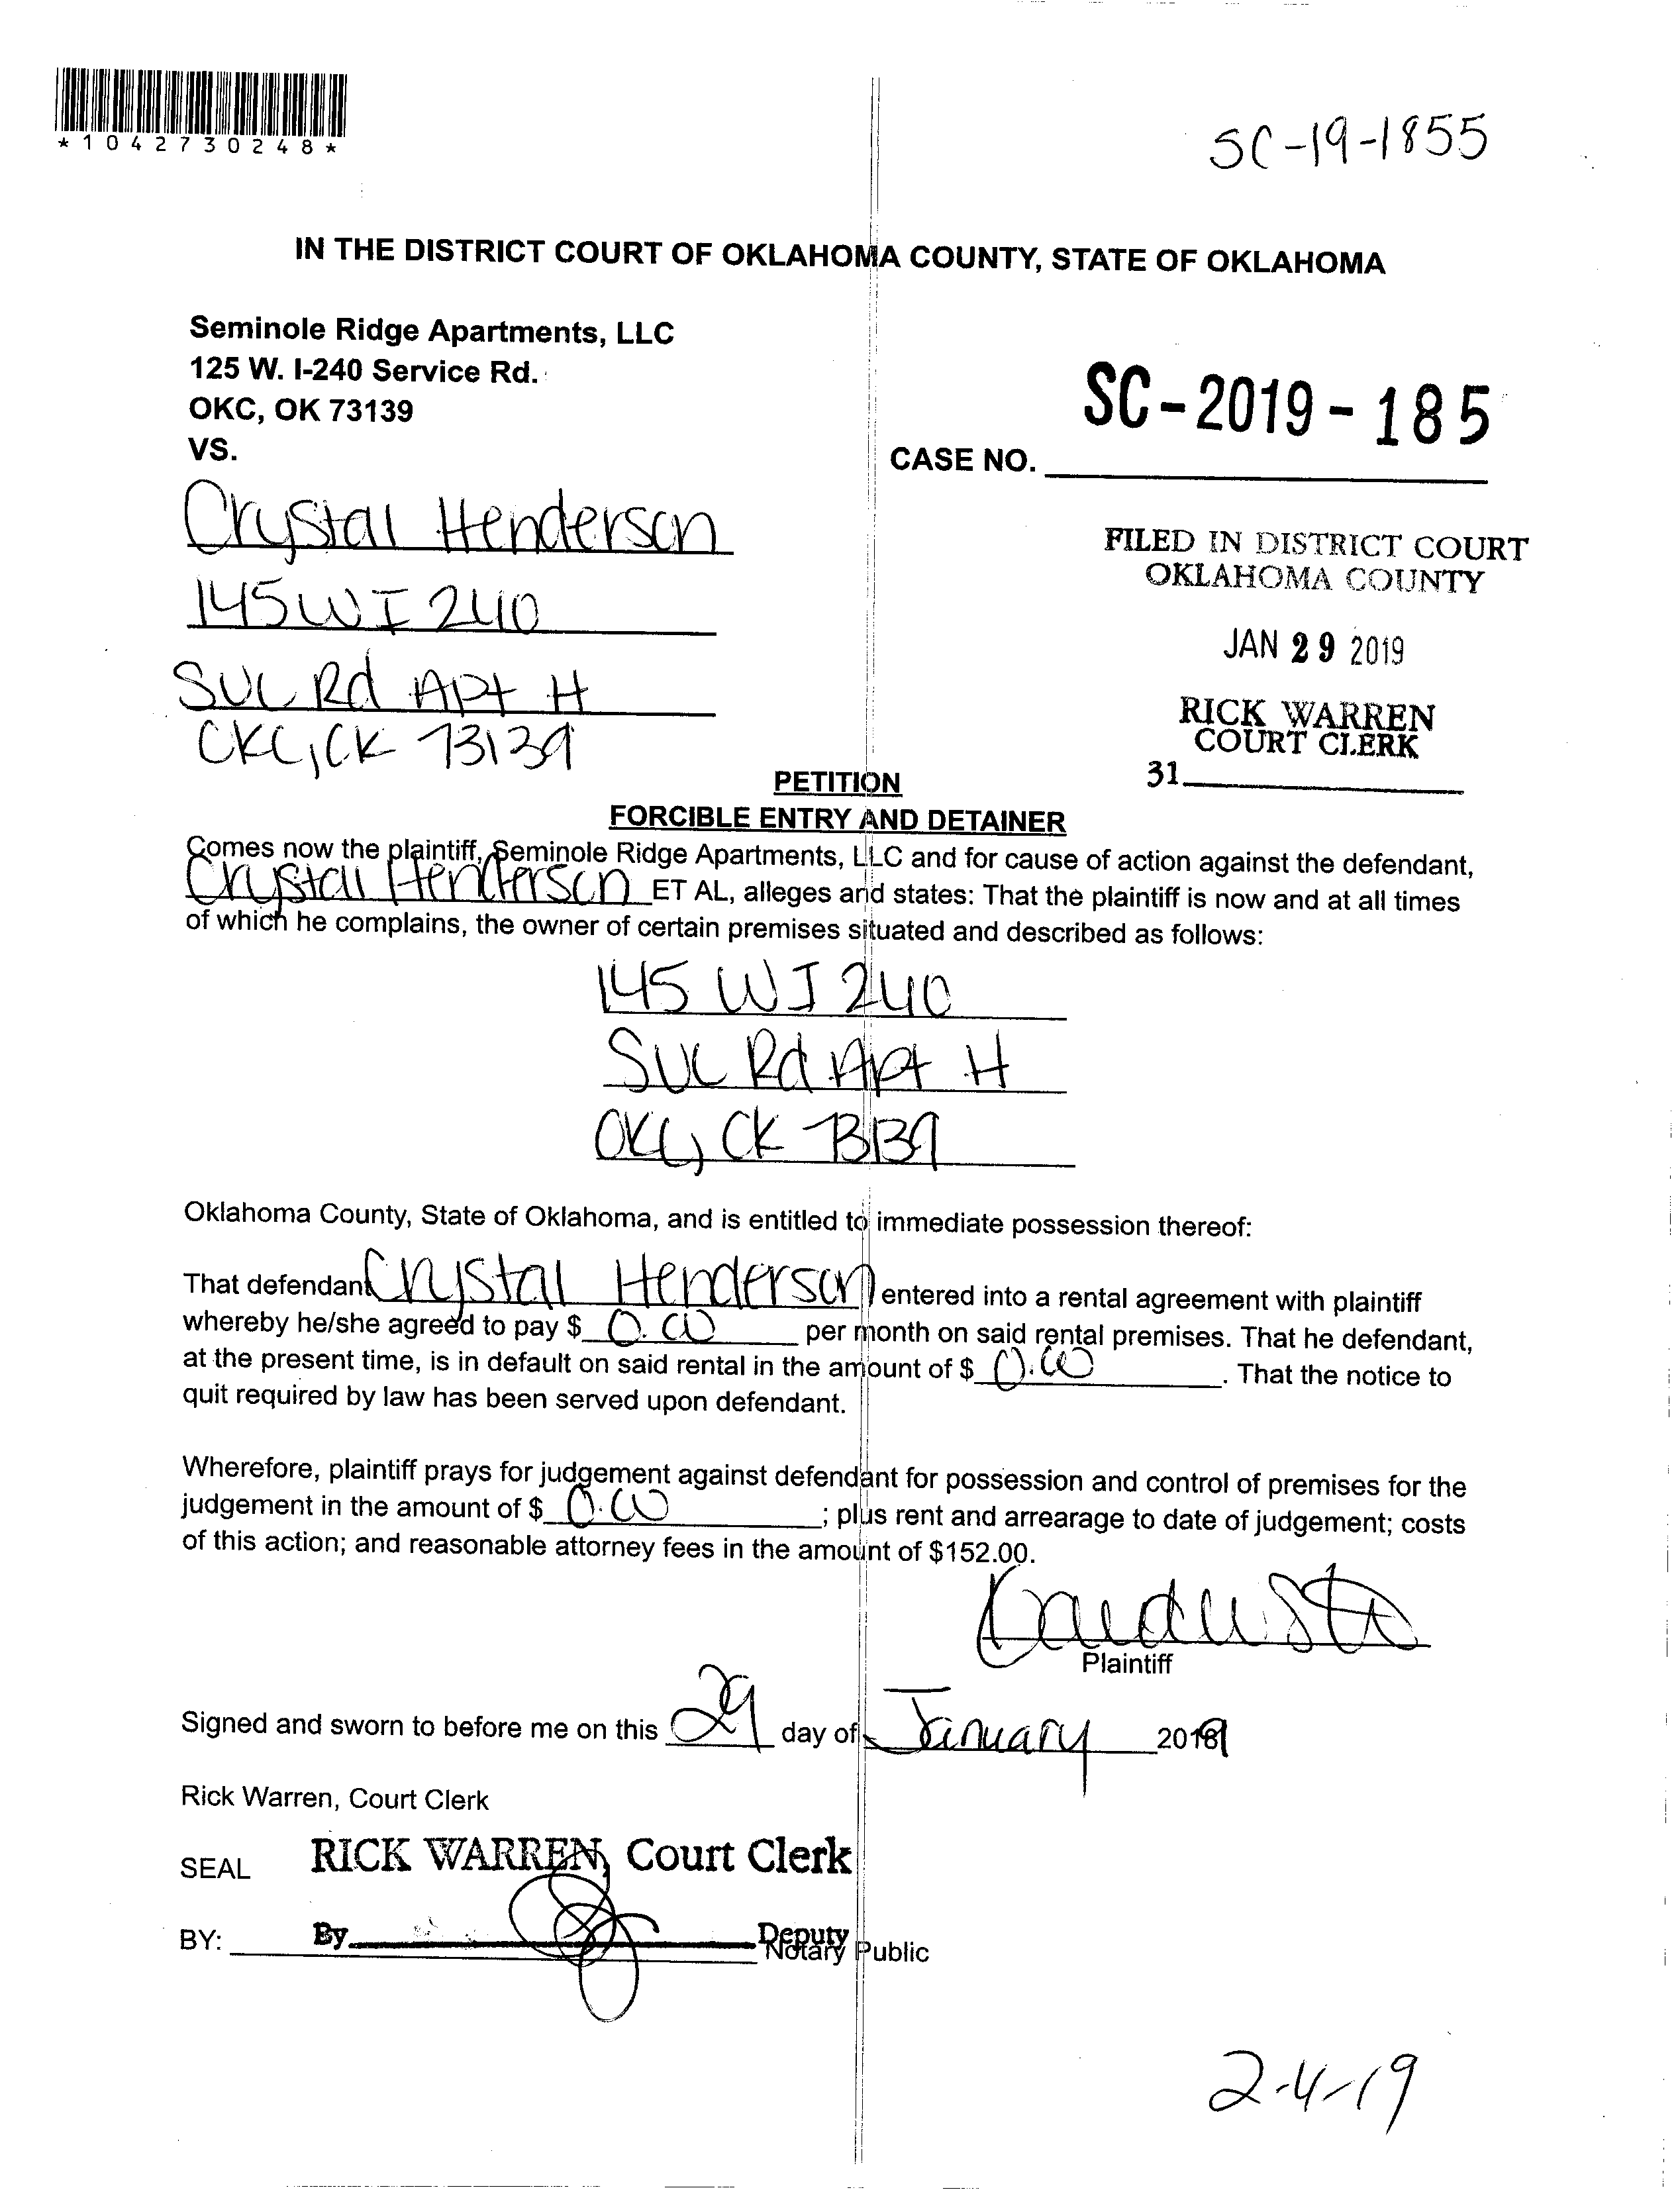 *1042730248*
SC-19-1855
IN THE DISTRICT COURT OF OKLAHOMA COUNTY, STATE OF OKLAHOMA
Seminole Ridge Apartments, LLC
125 W. I-240 Service Rd.
OKC, OK 73139
VS.
SC-2019-185
CASE NO.
Crystal Henderson
145 W I 240
SVC Rd Apt H
OKC, OK 73139
FILED IN DISTRICT COURT
OKLAHOMA COUNTY
JAN 29 2019
RICK WARREN
COURT CLERK
31
PETITION
FORCIBLE ENTRY AND DETAINER
Comes now the plaintiff, Seminole Ridge Apartments, LLC and for cause of action against the defendant,
Crystal Henderson ET AL, alleges and states: That the plaintiff is now and at all times
of which he complains, the owner of certain premises situated and described as follows:
145 W I 240
SVC Rd Apt H
OKC, OK 73139
Oklahoma County, State of Oklahoma, and is entitled to immediate possession thereof:
That defendant Crystal Henderson entered into a rental agreement with plaintiff
whereby he/she agreed to pay $ 0.00 per month on said rental premises. That he defendant,
at the present time, is in default on said rental in the amount of $ 0.00. That the notice to
quit required by law has been served upon defendant.
Wherefore, plaintiff prays for judgement against defendant for possession and control of premises for the
judgement in the amount of $ 0.00; plus rent and arrearage to date of judgement; costs
of this action; and reasonable attorney fees in the amount of $152.00.
Plaintiff
Signed and sworn to before me on this 29 day of January 2019
Rick Warren, Court Clerk
SEAL RICK WARREN, Court Clerk
BY: By Deputy
Notary Public
2-4-19